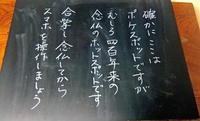 確かにここは
ポケスポットですが
むしろ四百年来の
念仏のホットスポットです
合掌し念仏してから
スマホを操作しましょう